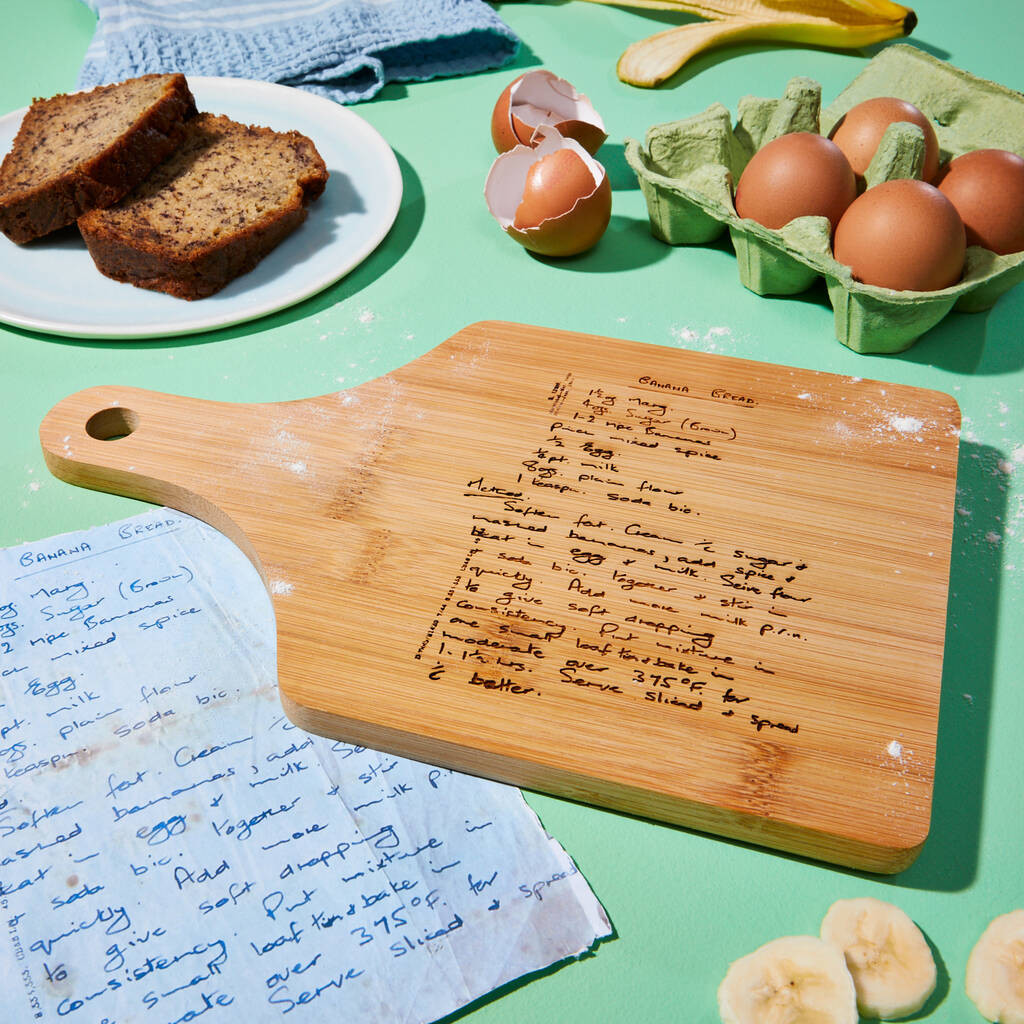 BANANA BREAD.
1½oz Marg.
4ozs. Sugar (Brown)
1-2 ripe Bananas
pinch mixed spice
½ egg.
¼pt. milk
8ozs. plain flour
1 teaspn. soda bic.
Method.
Soften fat. Cream ⁻/c sugar &
mashed bananas, add spice &
beat in egg & milk. Seive flour
& soda bic. together & stir in
quickly. Add more milk p.r.n.
to give soft dropping
consistency. Put mixture in
one small loaf tin & bake in
moderate over 375°F. for
1-1½ hrs. Serve sliced & spread
⁻/c better.
BANANA BREAD.
ozs Marg.
ozs. Sugar (Brown)
2 ripe Bananas
mixed spice
egg.
pt. milk
ozs. plain flour
teaspn. soda bic.
Soften fat. Cream ⁻/c
mashed bananas, add
beat in egg & milk. Se
soda bic. together & stir
quickly. Add more milk p.r.
to give soft dropping
consistency. Put mixture in
small loaf tin & bake in
over 375°F. for
Serve sliced & spread